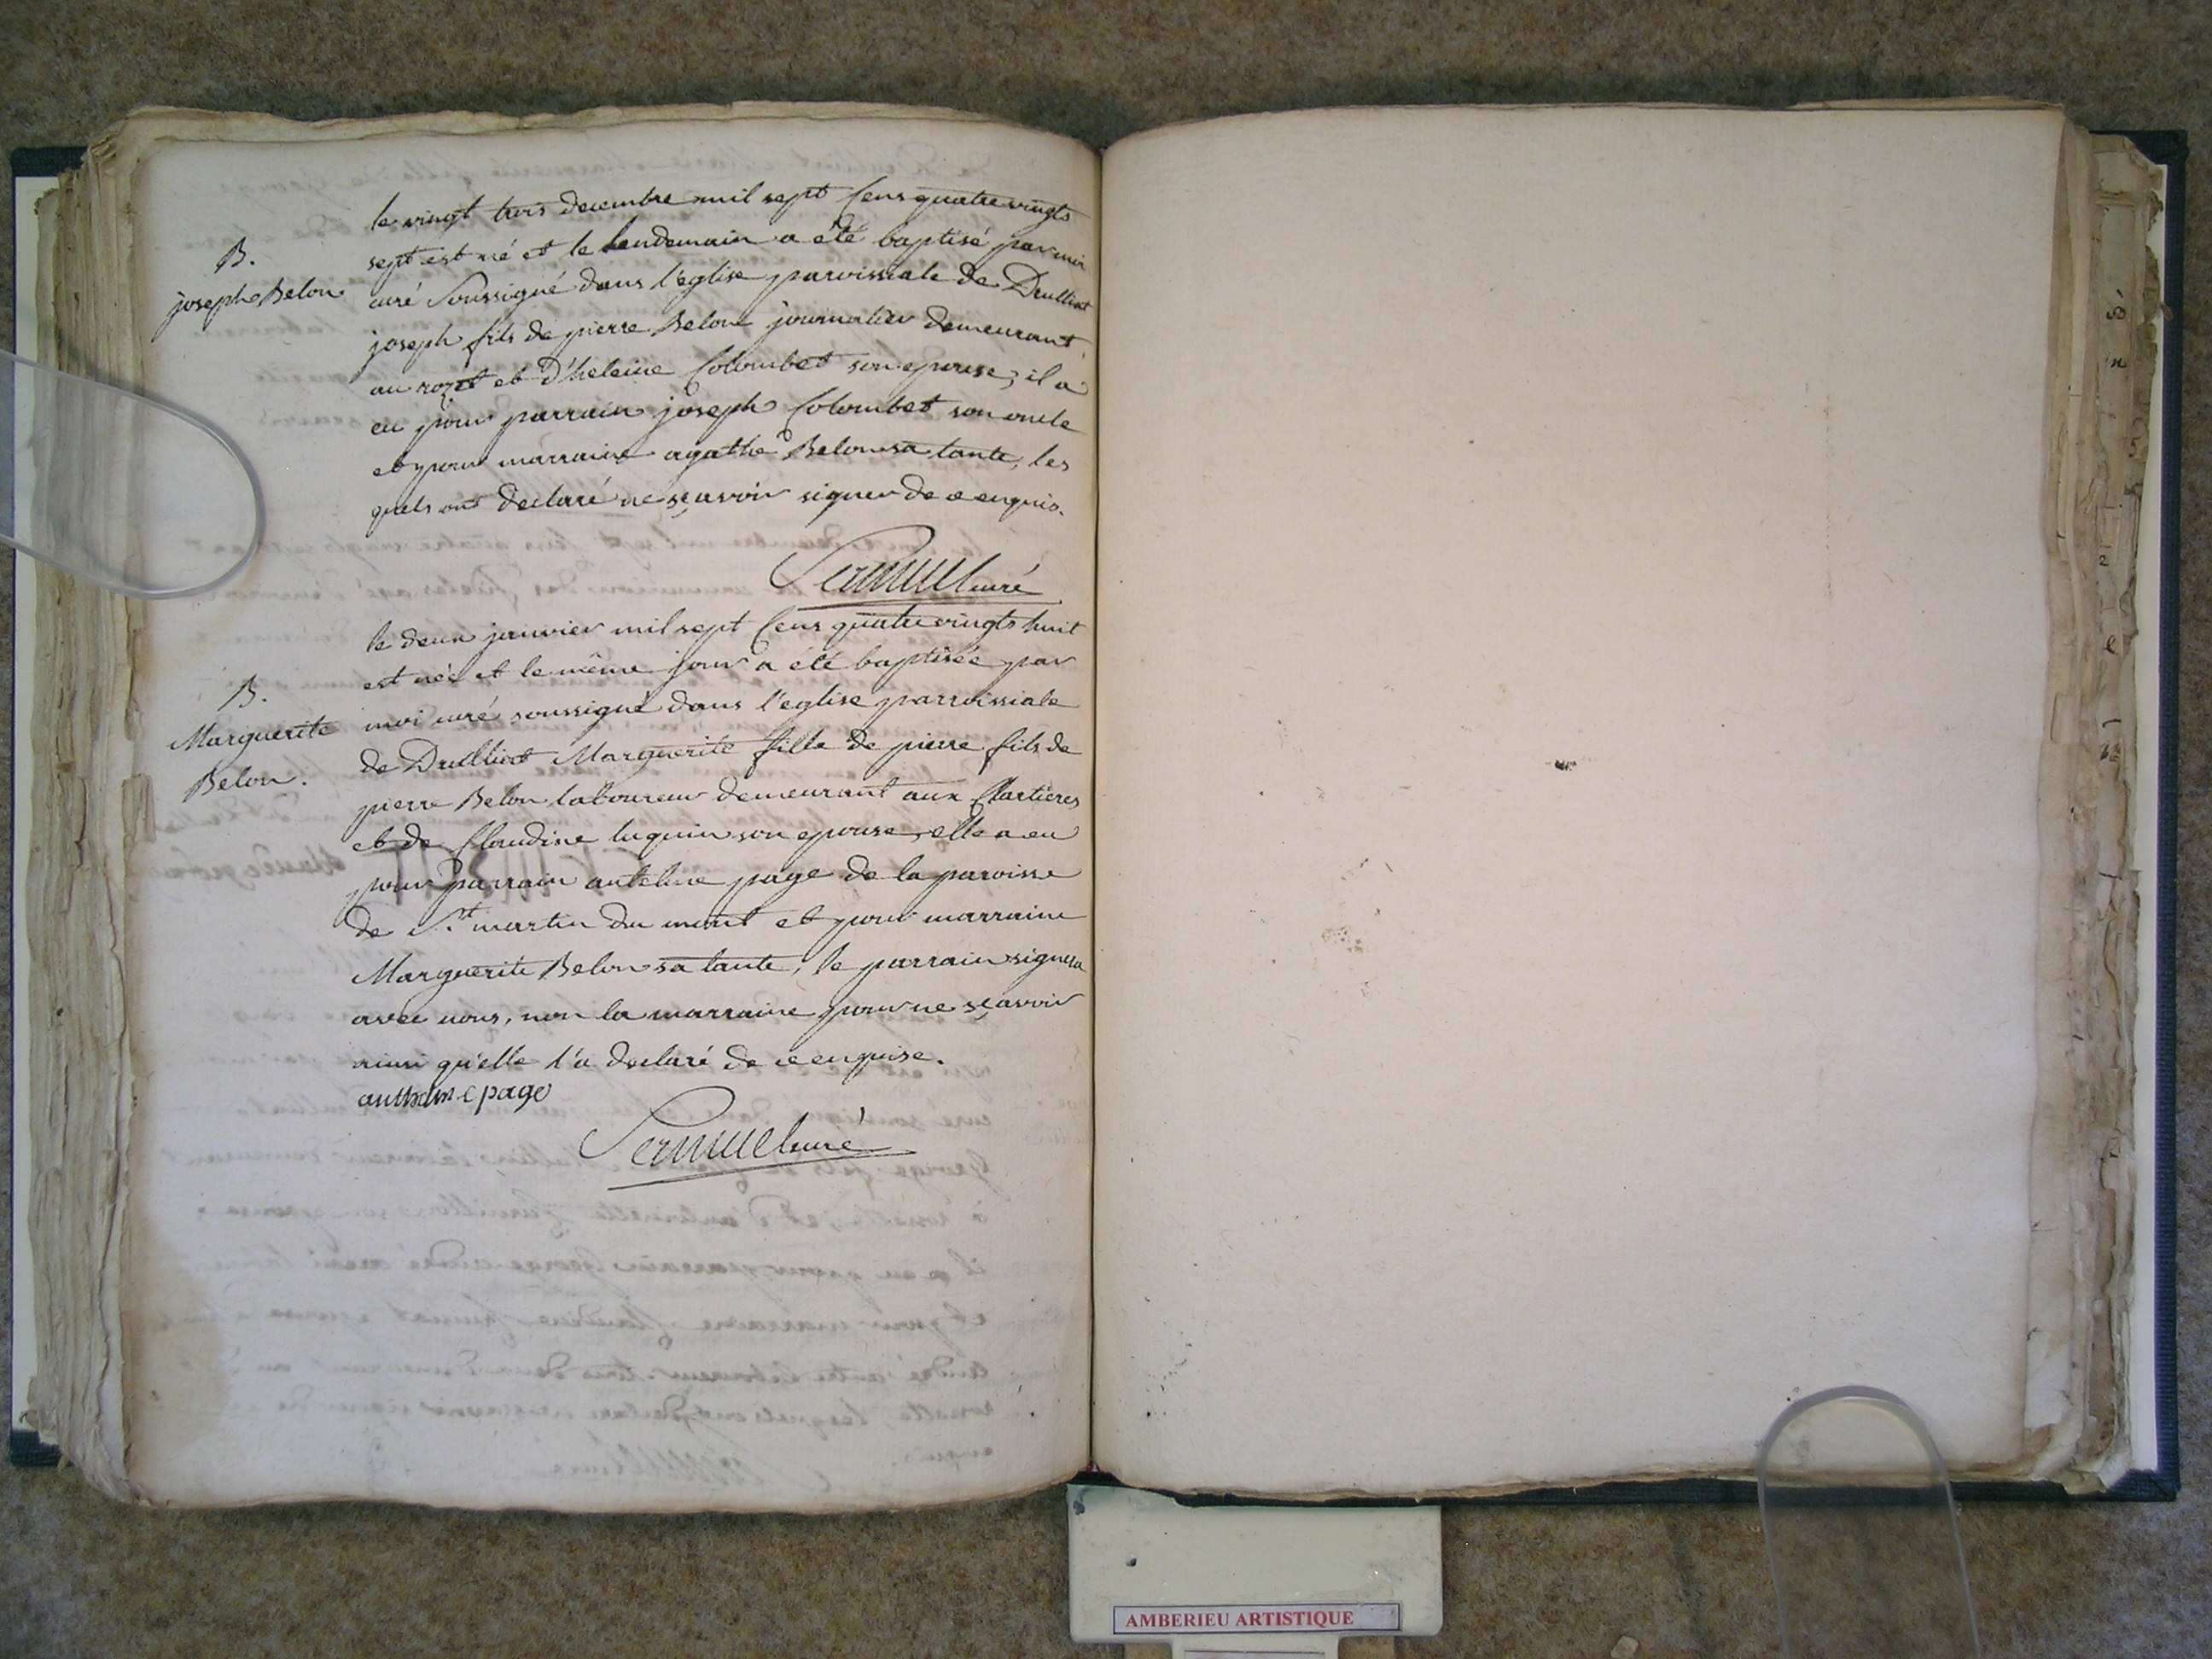 le vingt trois decembre mil sept Cens quatre vingts
sept est né et le lendemain a été baptisé par moi
B.
joseph Belon
curé Soussigné dans l'eglise paroissiale de Druilliat
joseph fils de pierre Belon journalier demeurant
au rozet et d'heleine Colombet son epouse, il a
eu pour parrain joseph Colombet son oncle
et pour marraine agathe Belon sa tante, les
quels ont declaré ne sçavoir signer de ce enquis.
curé
le deux janvier mil sept Cens quatre vingts huit
est née et le même jour a été baptisée par
B.
Marguerite
Belon.
moi curé soussigné dans l'eglise parroissiale
de Druilliat Marguerite fille de pierre fils de
pierre Belon laboureur demeurant aux
et de Claudine luquin son epouse, elle a eu
pour parrain antelme page de la paroisse
de St. martin du mont et pour marraine
Marguerite Belon sa tante, le parrain signera
avec nous, non la marraine pour ne sçavoir
ainsi qu'elle l'a declaré de ce enquise.
page
curé
AMBERIEU ARTISTIQUE